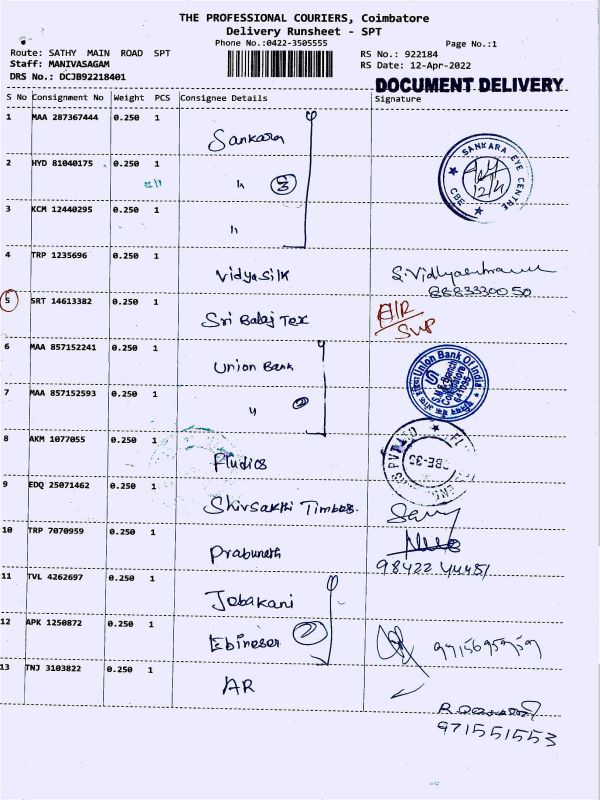 THE PROFESSIONAL COURIERS, Coimbatore
Delivery Runsheet - SPT
Phone No.:0422-3505555
Page No.:1
Route: SATHY MAIN ROAD SPT
RS No.: 922184
Staff: MANIVASAGAM
RS Date: 12-Apr-2022
DRS No.: DCJB92218401
DOCUMENT DELIVERY
S No Consignment No Weight PCS Consignee Details Signature
1 MAA 287367444 0.250 1 Sankara
SANKARA EYE CENTRE CBE 12/4
2 HYD 81040175 0.250 1 " 3
3 KCM 12440295 0.250 1 "
4 TRP 1235696 0.250 1 Vidyasilk
8883330050
5 SRT 14613382 0.250 1 Sri Balaj Tex
6 MAA 857152241 0.250 1 Union Bank
Union Bank Of India Coimbatore
7 MAA 857152593 0.250 1 " 2
8 AKM 1077055 0.250 1 Fludics
CBE-35
9 EDQ 25071462 0.250 1 Shivsakthi Timbes.
10 TRP 7070959 0.250 1 Prabunath
98422 44481
11 TVL 4262697 0.250 1 Jebakani
12 APK 1250872 0.250 1 Ebineser 2
13 TNJ 3103822 0.250 1 AR
971551553